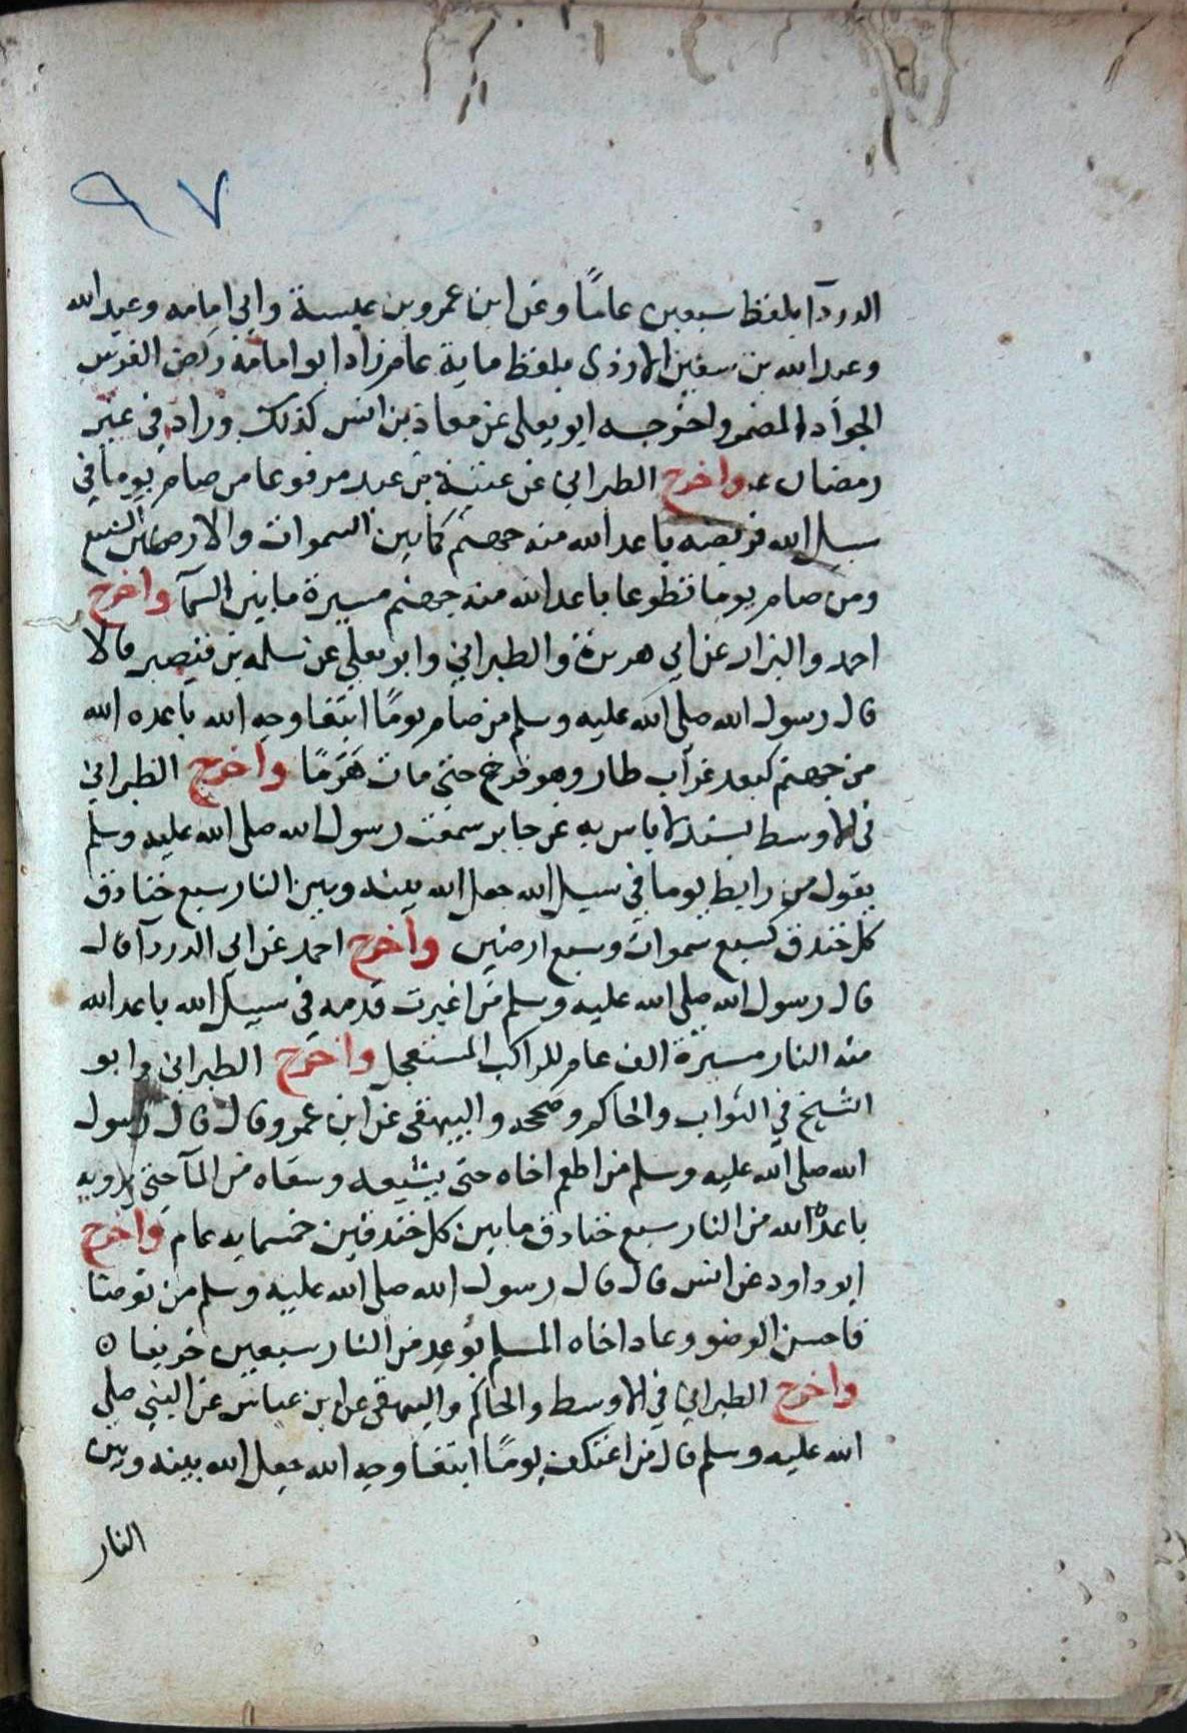 ٩٧
الدردآ بلفظ سبعين عامًا وعن ابن عمرو بن عبسة وابي امامه وعبد الله
وعبد الله بن سفين الازدى بلفظ ماية عام زاد ابو امامة ركض الفرس
الجواد المضمر واخرجه ابو يعلى عن معاذ بن انس كذلك وزاد في غير
رمضان واخرج الطبراني عن عتبة بن عبد مرفوعا من صام يوما في
سبيل الله فريضه باعد الله منه جهنم كما بين السموات والارضين السبع
ومن صام يوما تطوعا باعد الله منه جهنم مسيرة ما بين السمآ واخرج
احمد والبزار عن ابي هريرة والطبراني وابو يعلي عن سلمه بن قيصر قالا
قال رسول الله صلى الله عليه وسلم من صام يومًا ابتغا وجه الله باعده الله
من جهنم كبعد غراب طار وهو فرخ حتى مات هرمًا واخرج الطبراني
في الاوسط بسند لا باس به عن جابر سمعت رسول الله صلى الله عليه وسلم
يقول من رابط يوما في سبيل الله جعل الله بينه وبين النار سبع خنادق
كل خندق كسبع سموات وسبع ارضين واخرج احمد عن ابى الدردآ قال
قال رسول الله صلى الله عليه وسلم من اغبرت قدمه في سبيل الله باعد الله
منه النار مسيرة الف عام للراكب المستعجل واخرج الطبراني وابو
الشيخ في الثواب والحاكم وصححه والبيهقى عن ابن عمرو قال قال رسول
الله صلى الله عليه وسلم من اطعم اخاه حتى يشبعه وسقاه من المآ حتى يرويه
باعده الله من النار سبع خنادق ما بين كل خندقين خمسمايه عام واخرج
ابو داود عن انس قال قال رسول الله صلى الله عليه وسلم من توضا
فاحسن الوضو وعاد اخاه المسلم بوعد من النار سبعين خريفا ه
واخرج الطبراني في الاوسط والحاكم والبيهقى عن ابن عباس عن النبي صلى
الله عليه وسلم قال من اعتكف يومًا ابتغا وجه الله جعل الله بينه وبين
النار